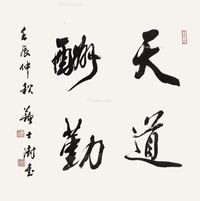 天道
酬勤
壬辰仲秋
苏士澍书